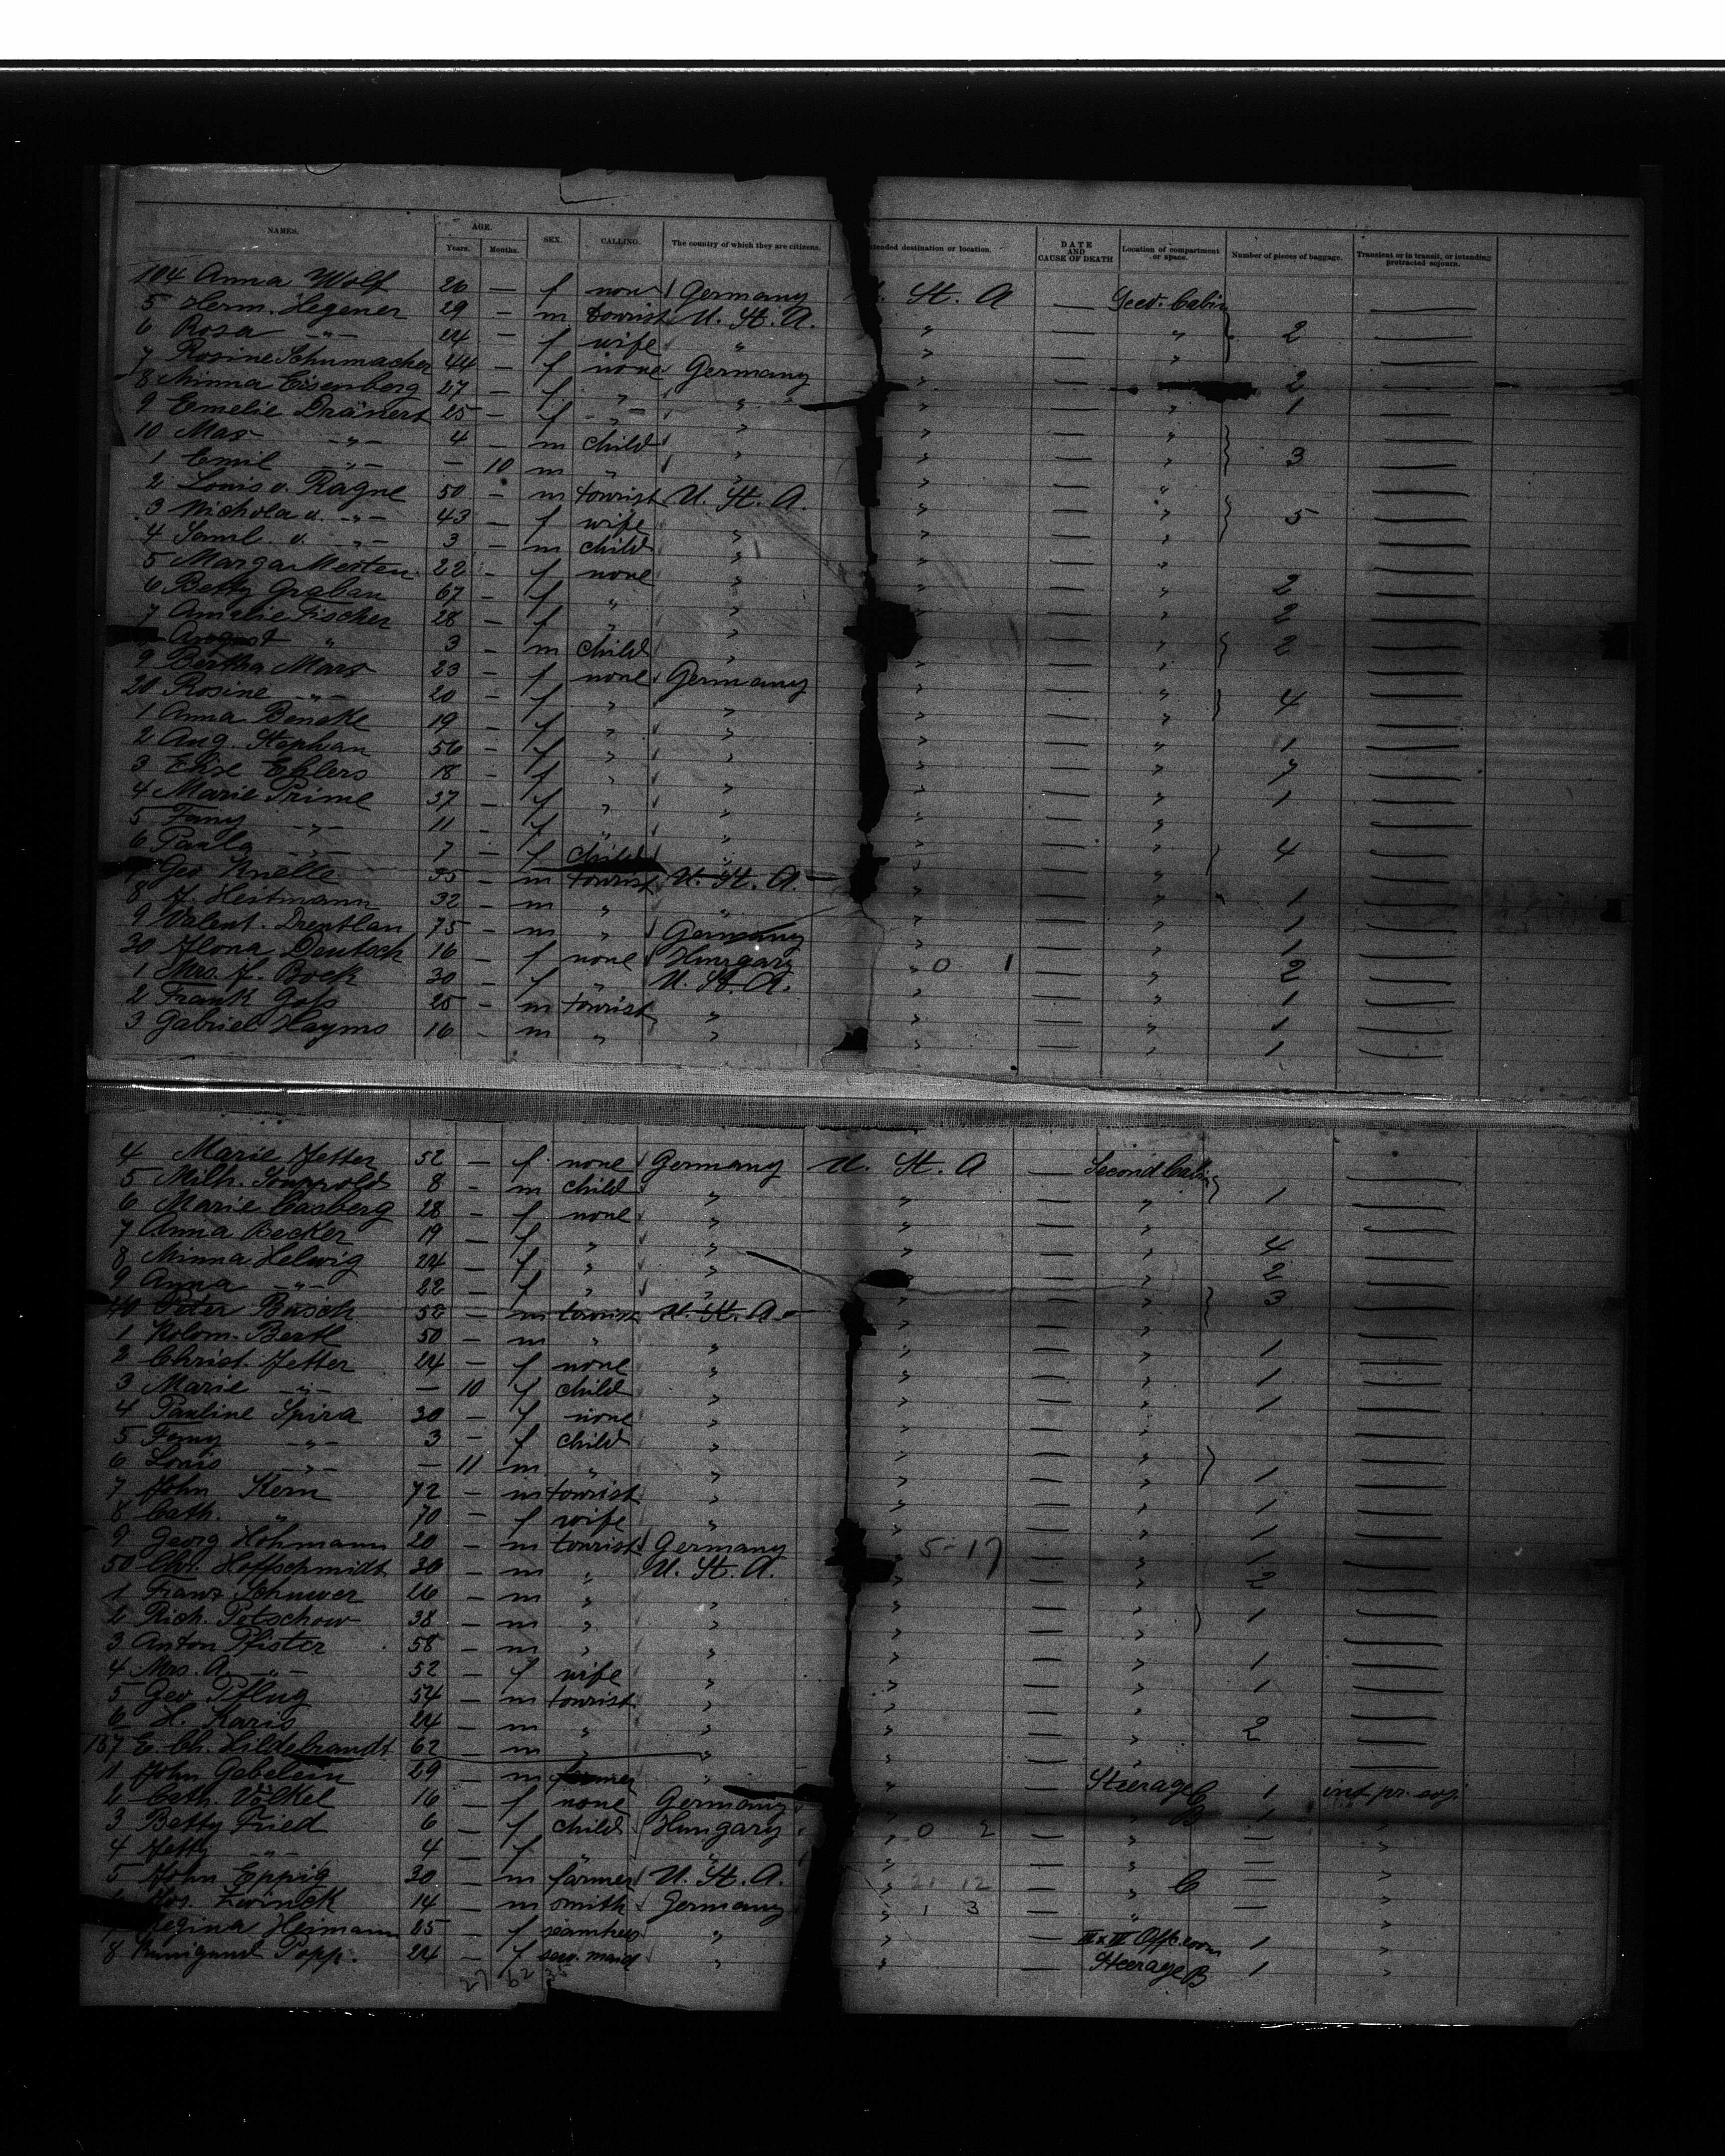 NAMES. AGE. Years. Months. SEX. CALLING. The country of which they are citizens. ntended destination or location. DATE AND CAUSE OF DEATH Location of compartment or space. Number of pieces of baggage. Transient or in transit, or intending protracted sojourn.
104 Anna Wolf 26 — f none Germany St. A — Secd. Cabin —
5 Herm. Hegener 29 — m tourist U. St. A. " — " 2 —
6 Rosa -"- 24 — f wife " " — " —
7 Rosine Schumacher 44 — f none Germany " — 2 —
8 Minna Eisenberg 27 — f " " " — " 1 —
9 Emelie Dränert 25 — f " " " — " —
10 Max -"- 4 — m child " " — " 3 —
1 Emil -"- — 10 m " " " — " —
2 Louis v. Ragne 50 — m tourist U. St. A. " — " —
3 Nichola v. -"- 43 — f wife " " — " 5 —
4 Saml. v. -"- 3 — m child " " — " —
5 Marga Merten 22 — f none " " — " 2 —
6 Betty Graban 67 — f " " " — " 2 —
7 Amalie Fischer 28 — f " " " — " —
August " 3 — m child " " — " 2 —
9 Bertha Marx 23 — f none Germany " — " —
20 Rosine -"- 20 — f " " " — " 4 —
1 Anna Beneke 19 — f " " " — " 1 —
2 Aug. Stephan 56 — f " " " — " 7 —
3 Elise Ehlers 18 — f " " " — " 1 —
4 Marie Prime 37 — f " " " — " —
5 Fany -"- 11 — f " " " — " 4 —
6 Paula -"- 7 — f child " " — " —
7 Geo Knelle 35 — m tourist U. St. A. " — " 1 —
8 J. Heitmann 32 — m " " " — " 1 —
9 Valent. Drentlan 75 — m " Germany " — " 1 —
30 Ilona Deutsch 16 — f none Hungary " 0 1 — " 2 —
1 Mrs. J. Bock 30 — f " U. St. A. " — " 1 —
2 Frank Goss 25 — m tourist " " — " 1 —
3 Gabriel Hayms 16 — m " " " — " 1 —
4 Marie Jetter 52 — f none Germany U. St. A — Second Cabin —
5 Milh. 8 — m child " " — " 1 —
6 Marie Casberg 28 — f none " " — " —
7 Anna Becker 19 — f " " " — " 4 —
8 Minna Helwig 24 — f " " " — " 2 —
9 Anna -"- 22 — f " " " — " 3 —
40 Peter Busch 52 — m tourist U. St. A. " — " —
1 Kolom. Bertl 50 — m " " " — " 1 —
2 Christ. Jetter 24 — f none " " — " 1 —
3 Marie -"- — 10 f child " " — " 1 —
4 Pauline Spira 30 — f none " " — " —
5 Fany -"- 3 — f child " " — " —
6 Louis -"- — 11 m " " " — " 1 —
7 John Kern 72 — m tourist " " — " 1 —
8 Cath. " 70 — f wife " " — " 1 —
9 Georg Hohmann 20 — m tourist Germany " 5-17 — " 1 —
50 Chr. Hoffschmidt 30 — m " U. St. A. " — " 2 —
1 Franz Schuwer 26 — m " " " — " 1 —
2 Rich. Potschow 38 — m " " " — " —
3 Anton Pfister 58 — m " " " — " 1 —
4 Mrs. A. -"- 52 — f wife " " — " 1 —
5 Geo Pflug 54 — m tourist " " — " —
6 H. Karis 24 — m " " " — " 2 —
157 E. Ch. Hildebrandt 62 — m " " " — " —
1 John Gebelein 29 — m farmer " " — Steerage C 1 int. pr. soj.
2 Cath. Völkel 16 — f none Germany " — " B 1 "
3 Betty Fried 6 — f child Hungary " 0 2 — " — "
4 Jetty -"- 4 — f " " " — " — "
5 John Eppig 30 — m farmer U. St. A. " 21 12 — " C — "
6 Jos. Zwinck 14 — m smith Germany " 1 3 — " — "
7 Regina Heimann 25 — f seamtress " " — II & III Offc. room 1 "
8 Kunigund Popp. 24 — f serv. maid " " — Steerage B 1 "
27 62